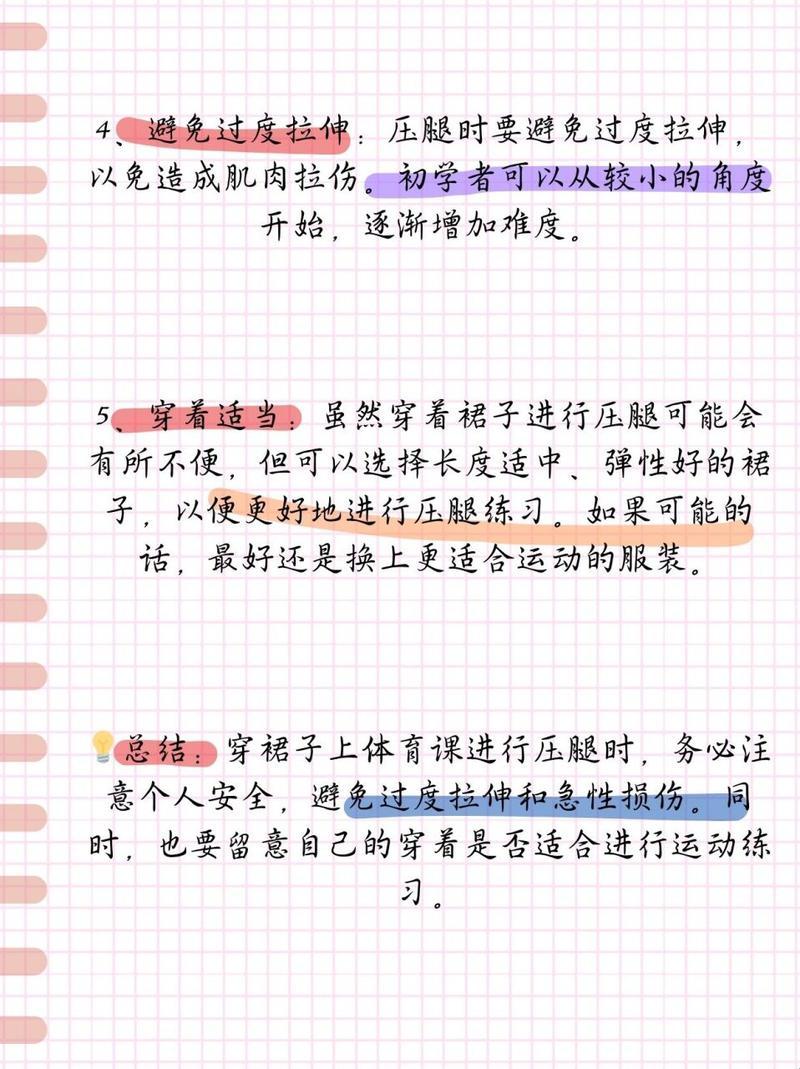 4、避免过度拉伸：压腿时要避免过度拉伸，
以免造成肌肉拉伤。初学者可以从较小的角度
开始，逐渐增加难度。
5、穿着适当：虽然穿着裙子进行压腿可能会
有所不便，但可以选择长度适中、弹性好的裙
子，以便更好地进行压腿练习。如果可能的
话，最好还是换上更适合运动的服装。
总结：穿裙子上体育课进行压腿时，务必注
意个人安全，避免过度拉伸和急性损伤。同
时，也要留意自己的穿着是否适合进行运动练
习。